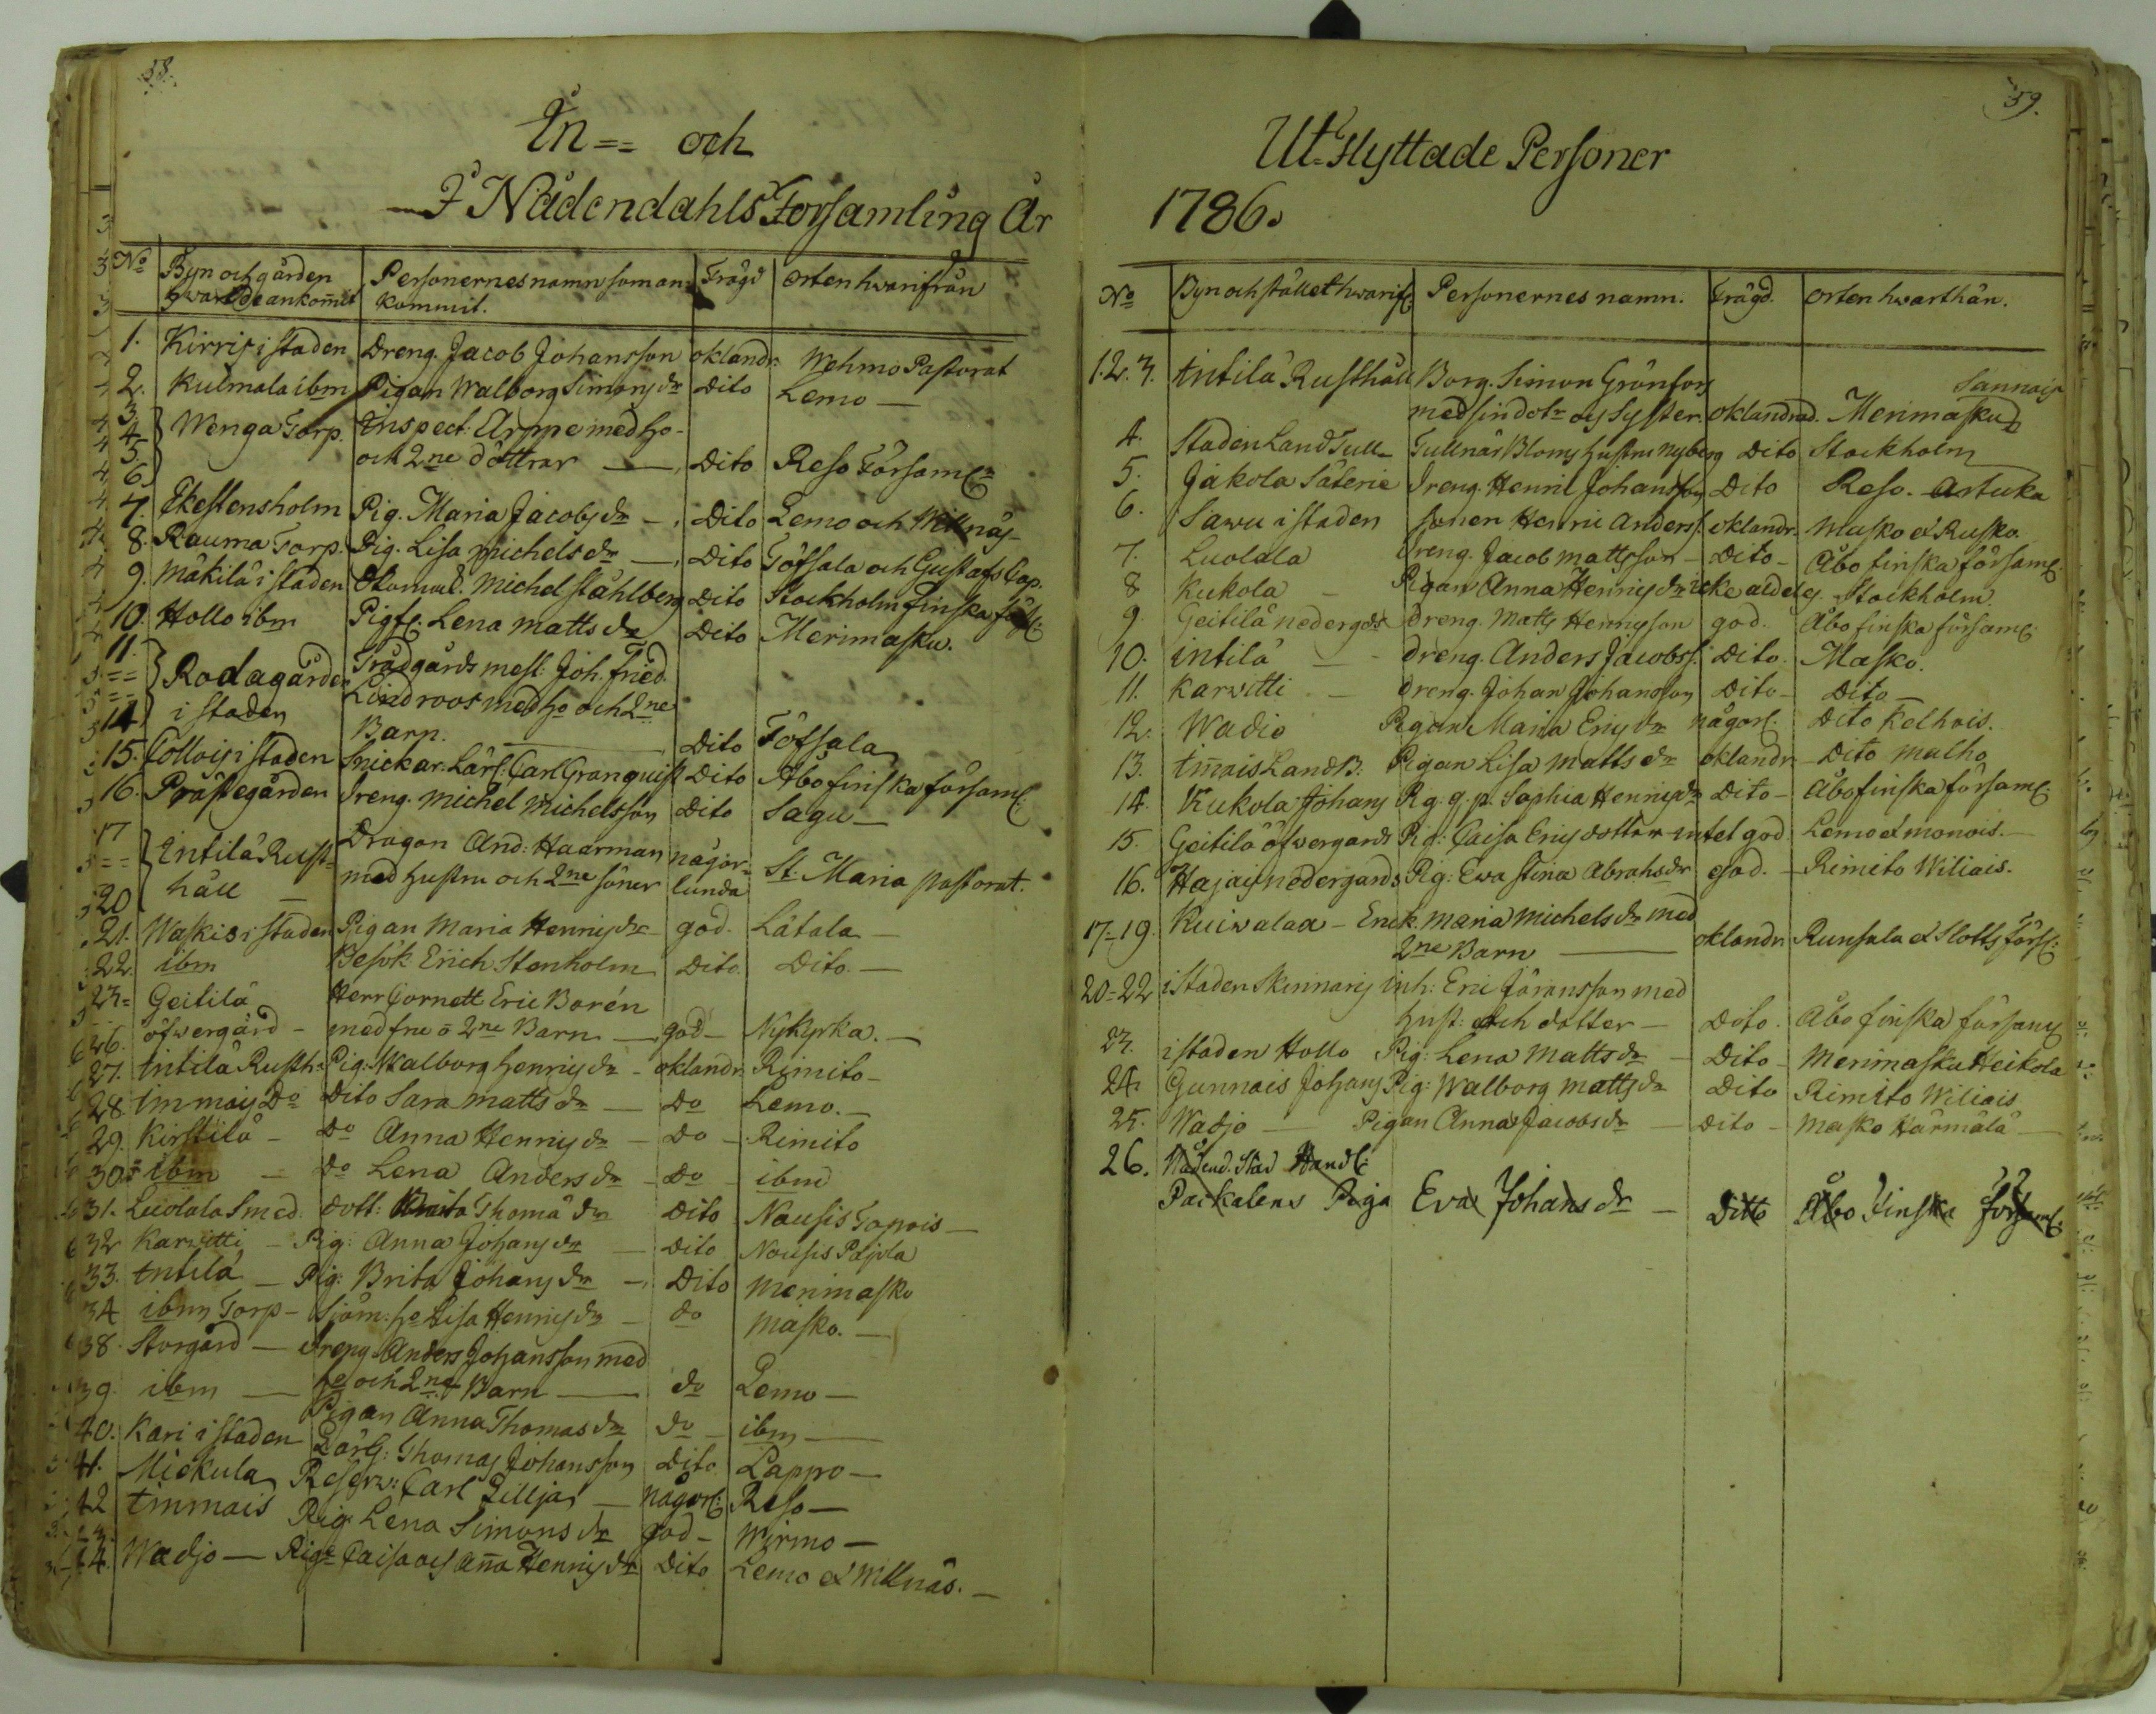 58.
In == och
I Nådendahls Församling År
No Byn och gården Personernes namn som an- Frägd orten hwarifrån
hwart de ankom̄it kommit.
1. Kirris i staden Dreng. Jacob Johansson oklandr: Wehmo Pastorat
2. Kulmala ibm Pigan Walborg Simonsdr Dito Lemo —
3. Wenga Torp. Inspect: Arppe med ho-
4.
5. och 2ne döttrar — Dito Reso Församl:
6.
7. Ekestensholm Pig. Maria Jacobsdr —, Dito Lemo och Willnäs
8. Rauma Torp. Pig. Lisa Michelsdr —, Dito Töfsala och Gustafs Cap.
9. Mäkilä i staden Michel Stählberg Dito Stockholm Finska förs:
10. Hollo ibm Lena Mattsdr Dito Merimasku.
11. Rodagården Trädgårds mest: Joh. Fried.
== i staden Lindroos med ho och 2ne
14 Barn. — Dito Töfsala
15. Collois i staden Snickar. Lärl: Carl Granquist Dito Åbo finska församl:
16. Prästegården Dreng. Michel Michelsson Dito Sagu —
17 Intilä Rust- Dragon And: Haarman någor- St: Maria pastorat.
== håll — med hustru och 2ne söner lunda
20
21. Waskis i staden Pigan Maria Henricsdr god. Lätala —
22. ibm Besök. Erich Stenholm Dito. Dito. —
23= Geitilä Herr Cornett Eric Borén
26. öfwergård — med fru o 2ne Barn — god — Nykyrka. —
27. Intilä Rusth: Pig: Walborg Henricsdr — oklandr Rimito —
28 Immais Do Dito Sara Mattsdr — Do Lemo. —
29. Kirstilä — Do Anna Henricsdr — Do — Rimito
30. ibm — Do Lena Andersdr — Do — ibm
31. Luolala Smed. dott: Brita Thomædr Dito Nousis Topois —
32 Karwitti — Pig: Anna Johansdr — Dito Nousis Paijola
33. Intilä — Pig: Brita Johansdr —, Dito Merimasko
34 ibm Torp — Sjöm: ho Lisa Henricsdr — do Masko. —
38. Storgård — Dreng Anders Johansson med
ho och 2ne Barn — do Lemo —
39. ibm — Pigan Anna Thomasdr do — ibm —
40. Kari i staden Lärl: Thomas Johansson Dito Lappo —
41. Mickula Reserv: Carl Lilljas — någorl: Reso —
42 Immais Pig Lena Simonsdr god — Wirmo —
44. Wadjo — Pigr Caisa och Aña Henricsdr Dito Lemo et Willnäs. —
59.
Ut-flyttade Personer
1786.
No Byn och stället hwarif: Personernes namn. Frägd. Orten hwarthän.
1.2.3. Intilä Rusthåll Borg. Simon Grönfors Sannais
med sin dotr och Syster. oklandrad. Merimasku
4. Staden Land Tull Tullnär Bloms hustru Nyberg Dito Stockholm
5. Jakola Säterie Dreng. Henric Johansson Dito Reso. Artuka
6. Sawu i staden Sonen Henric Anderss: oklandr. Masko et Rusko.
7. Luolala Dreng. Jacob Mattsson — Dito — Åbo finska församl:
8 Kukola — Pigan Anna Henricsdr icke aldeles. Stockholm.
9. Geitilä nedergård Dreng. Matts Henricsson god. Åbo finska församl:
10. Intilä — Dreng. Anders Jacobss: Dito. Masko.
11. Karwitti — Dreng. Johan Johansson Dito — Dito —
12. Wadio Pigan Maria Ericsdr någorl: Dito Kelhois.
13. Im̄ais Land B: Pigan Lisa Mattsdr oklandr Dito Malho
14. Kukola Johans Pig. q. p. Sophia Henricsdr Dito — Åbo finska församl:
15. Geitilä öfwergårds Pig: Caisa Erics dotter intet god Lemo et Monois. —
16. Hajais nedergårds Pig: Ewa Stina Abrahsdr god. — Rimito Wiliais.
17-19. Kuiwalaa — Enck. Maria Michelsdr med
2ne Barn — oklandr Runsala et Slotts förs:
20-22 i Staden Skinnaris inh: Eric Jöransson med
hust: och dotter — Dito. Åbo finska församl
23. i staden Hollo Pig: Lena Mattsdr — Dito — Merimasku Heikola
24. Gunnais Johans Pig: Walborg Mattsdr Dito Rimito Wiliais
25. Wadjo — Pigan Anna Jacobsdr — Dito — Masko Härmälä —
26. Nådend. Stad Handl:
Packalens Piga Eva Johansdr — Ditto Åbo Finska Församl: